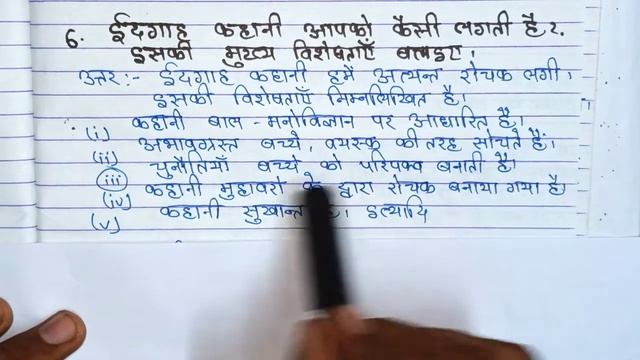 6. ईदगाह कहानी आपको कैसी लगती है?
इसकी मुख्य विशेषताएँ बताइए।
उत्तर:- ईदगाह कहानी हमें अत्यन्त रोचक लगी।
इसकी विशेषताएँ निम्नलिखित है।
(i) कहानी बाल-मनोविज्ञान पर आधारित है।
(ii) अभावग्रस्त बच्चे, वयस्क की तरह सोचते है।
(iii) चुनौतियाँ बच्चे को परिपक्व बनाती है।
(iv) कहानी मुहावरों के द्वारा रोचक बनाया गया है।
(v) कहानी सुखान्त है। इत्यादि